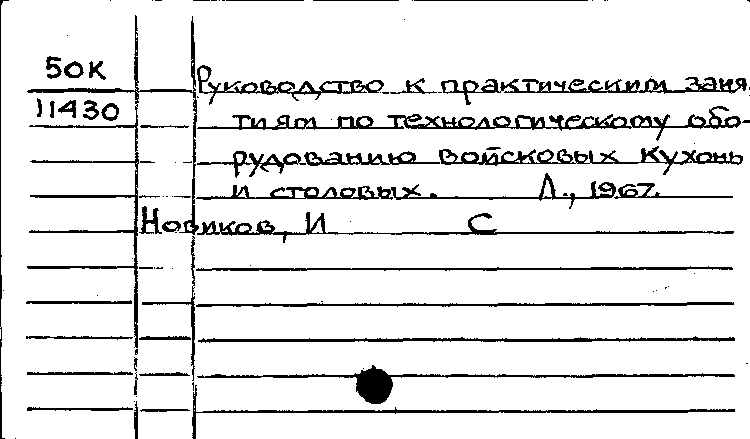 50К
11430
Руководство к практическим заня
тиям по технологическому обо-
рудованию войсковых кухонь
и столовых. Л., 1967.
Новиков, И С